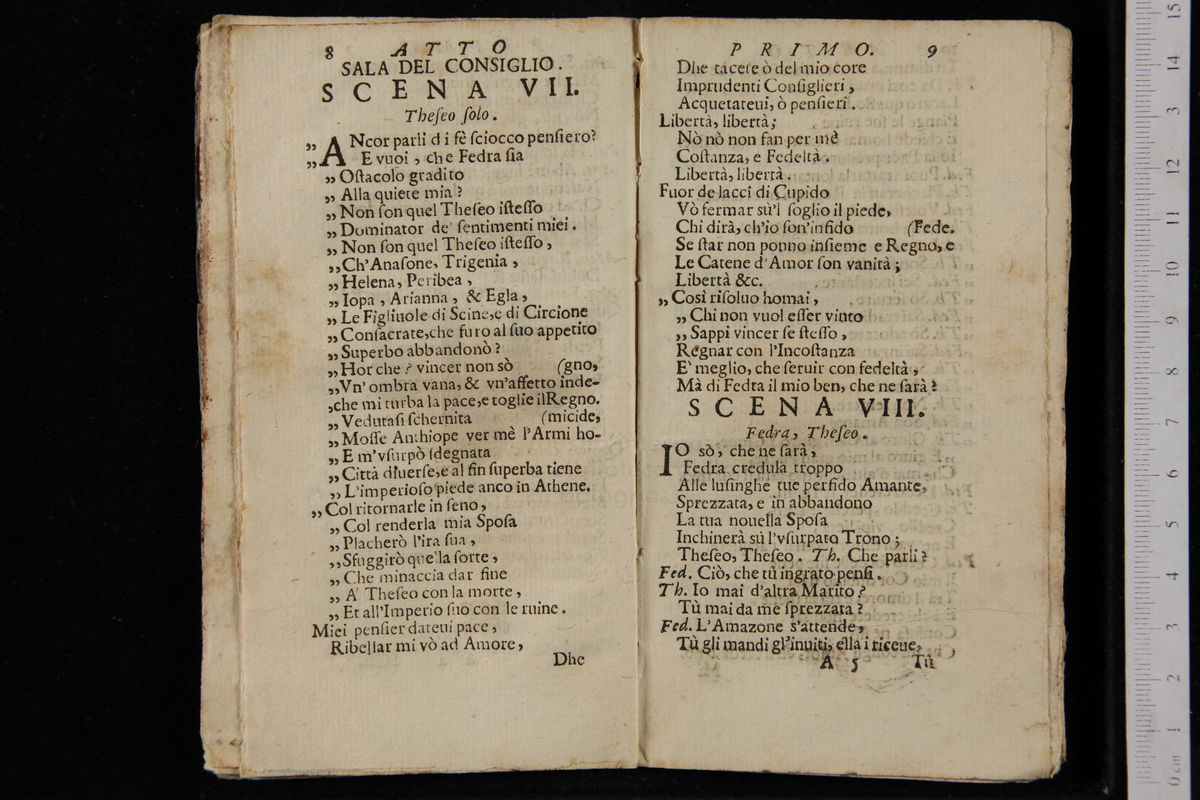 8 ATTO
SALA DEL CONSIGLIO.
SCENA VII.
Theſeo ſolo.
„ ANcor parli di fè ſciocco penſiero?
„ E vuoi, che Fedra ſia
„ Oſtacolo gradito
„ Alla quiete mia?
„ Non ſon quel Theſeo iſteſſo
„ Dominator de' ſentimenti miei.
„ Non ſon quel Theſeo iſteſſo,
„ Ch'Anaſone, Trigenia,
„ Helena, Peribea,
„ Iopa, Arianna, & Egla,
„ Le Figliuole di Scine,e di Circione
„ Conſacrate,che furo al ſuo appetito
„ Superbo abbandonò?
„ Hor che? vincer non sò (gno,
„ Vn' ombra vana, & vn'affetto inde-
,che mi turba la pace,e toglie ilRegno.
„ Vedutaſi ſchernita (micide,
„ Moſſe Anthiope ver mè l'Armi ho-
„ E m'vſurpò ſdegnata
„ Città diuerſe,e al fin ſuperba tiene
„ L'imperioſo piede anco in Athene.
„ Col ritornarle in ſeno,
„ Col renderla mia Spoſa
„ Placherò l'ira ſua,
„ Sfuggirò quella ſorte,
„ Che minaccia dar fine
„ A' Theſeo con la morte,
„ Et all'Imperio ſuo con le ruine.
Miei penſier dateui pace,
Ribellar mi vò ad Amore,
Dhe
PRIMO. 9
Dhe tacete ò del mio core
Imprudenti Conſiglieri,
Acquetateui, ò penſieri.
Libertà, libertà;
Nò nò non fan per mè
Coſtanza, e Fedeltà.
Libertà, libertà.
Fuor de lacci di Cupido
Vò fermar sù'l ſoglio il piede,
Chi dirà, ch'io ſon'infido (Fede.
Se ſtar non ponno inſieme e Regno, e
Le Catene d'Amor ſon vanità;
Libertà &c.
„ Così riſoluo homai,
„ Chi non vuol eſſer vinto
„ Sappi vincer ſe ſteſſo,
Regnar con l'Incoſtanza
E' meglio, che ſeruir con fedeltà,
Mà di Fedra il mio ben, che ne ſarà?
SCENA VIII.
Fedra, Theſeo.
IO sò, che ne ſarà,
Fedra credula troppo
Alle luſinghe tue perfido Amante,
Sprezzata, e in abbandono
La tua nouella Spoſa
Inchinerà sù l'vſurpato Trono;
Theſeo, Theſeo. Th. Che parli?
Fed. Ciò, che tù ingrato penſi.
Th. Io mai d'altra Marito?
Tù mai da me ſprezzata?
Fed. L'Amazone s'attende,
Tù gli mandi gl'inuiti, ella i riceue,
A 5 Tù